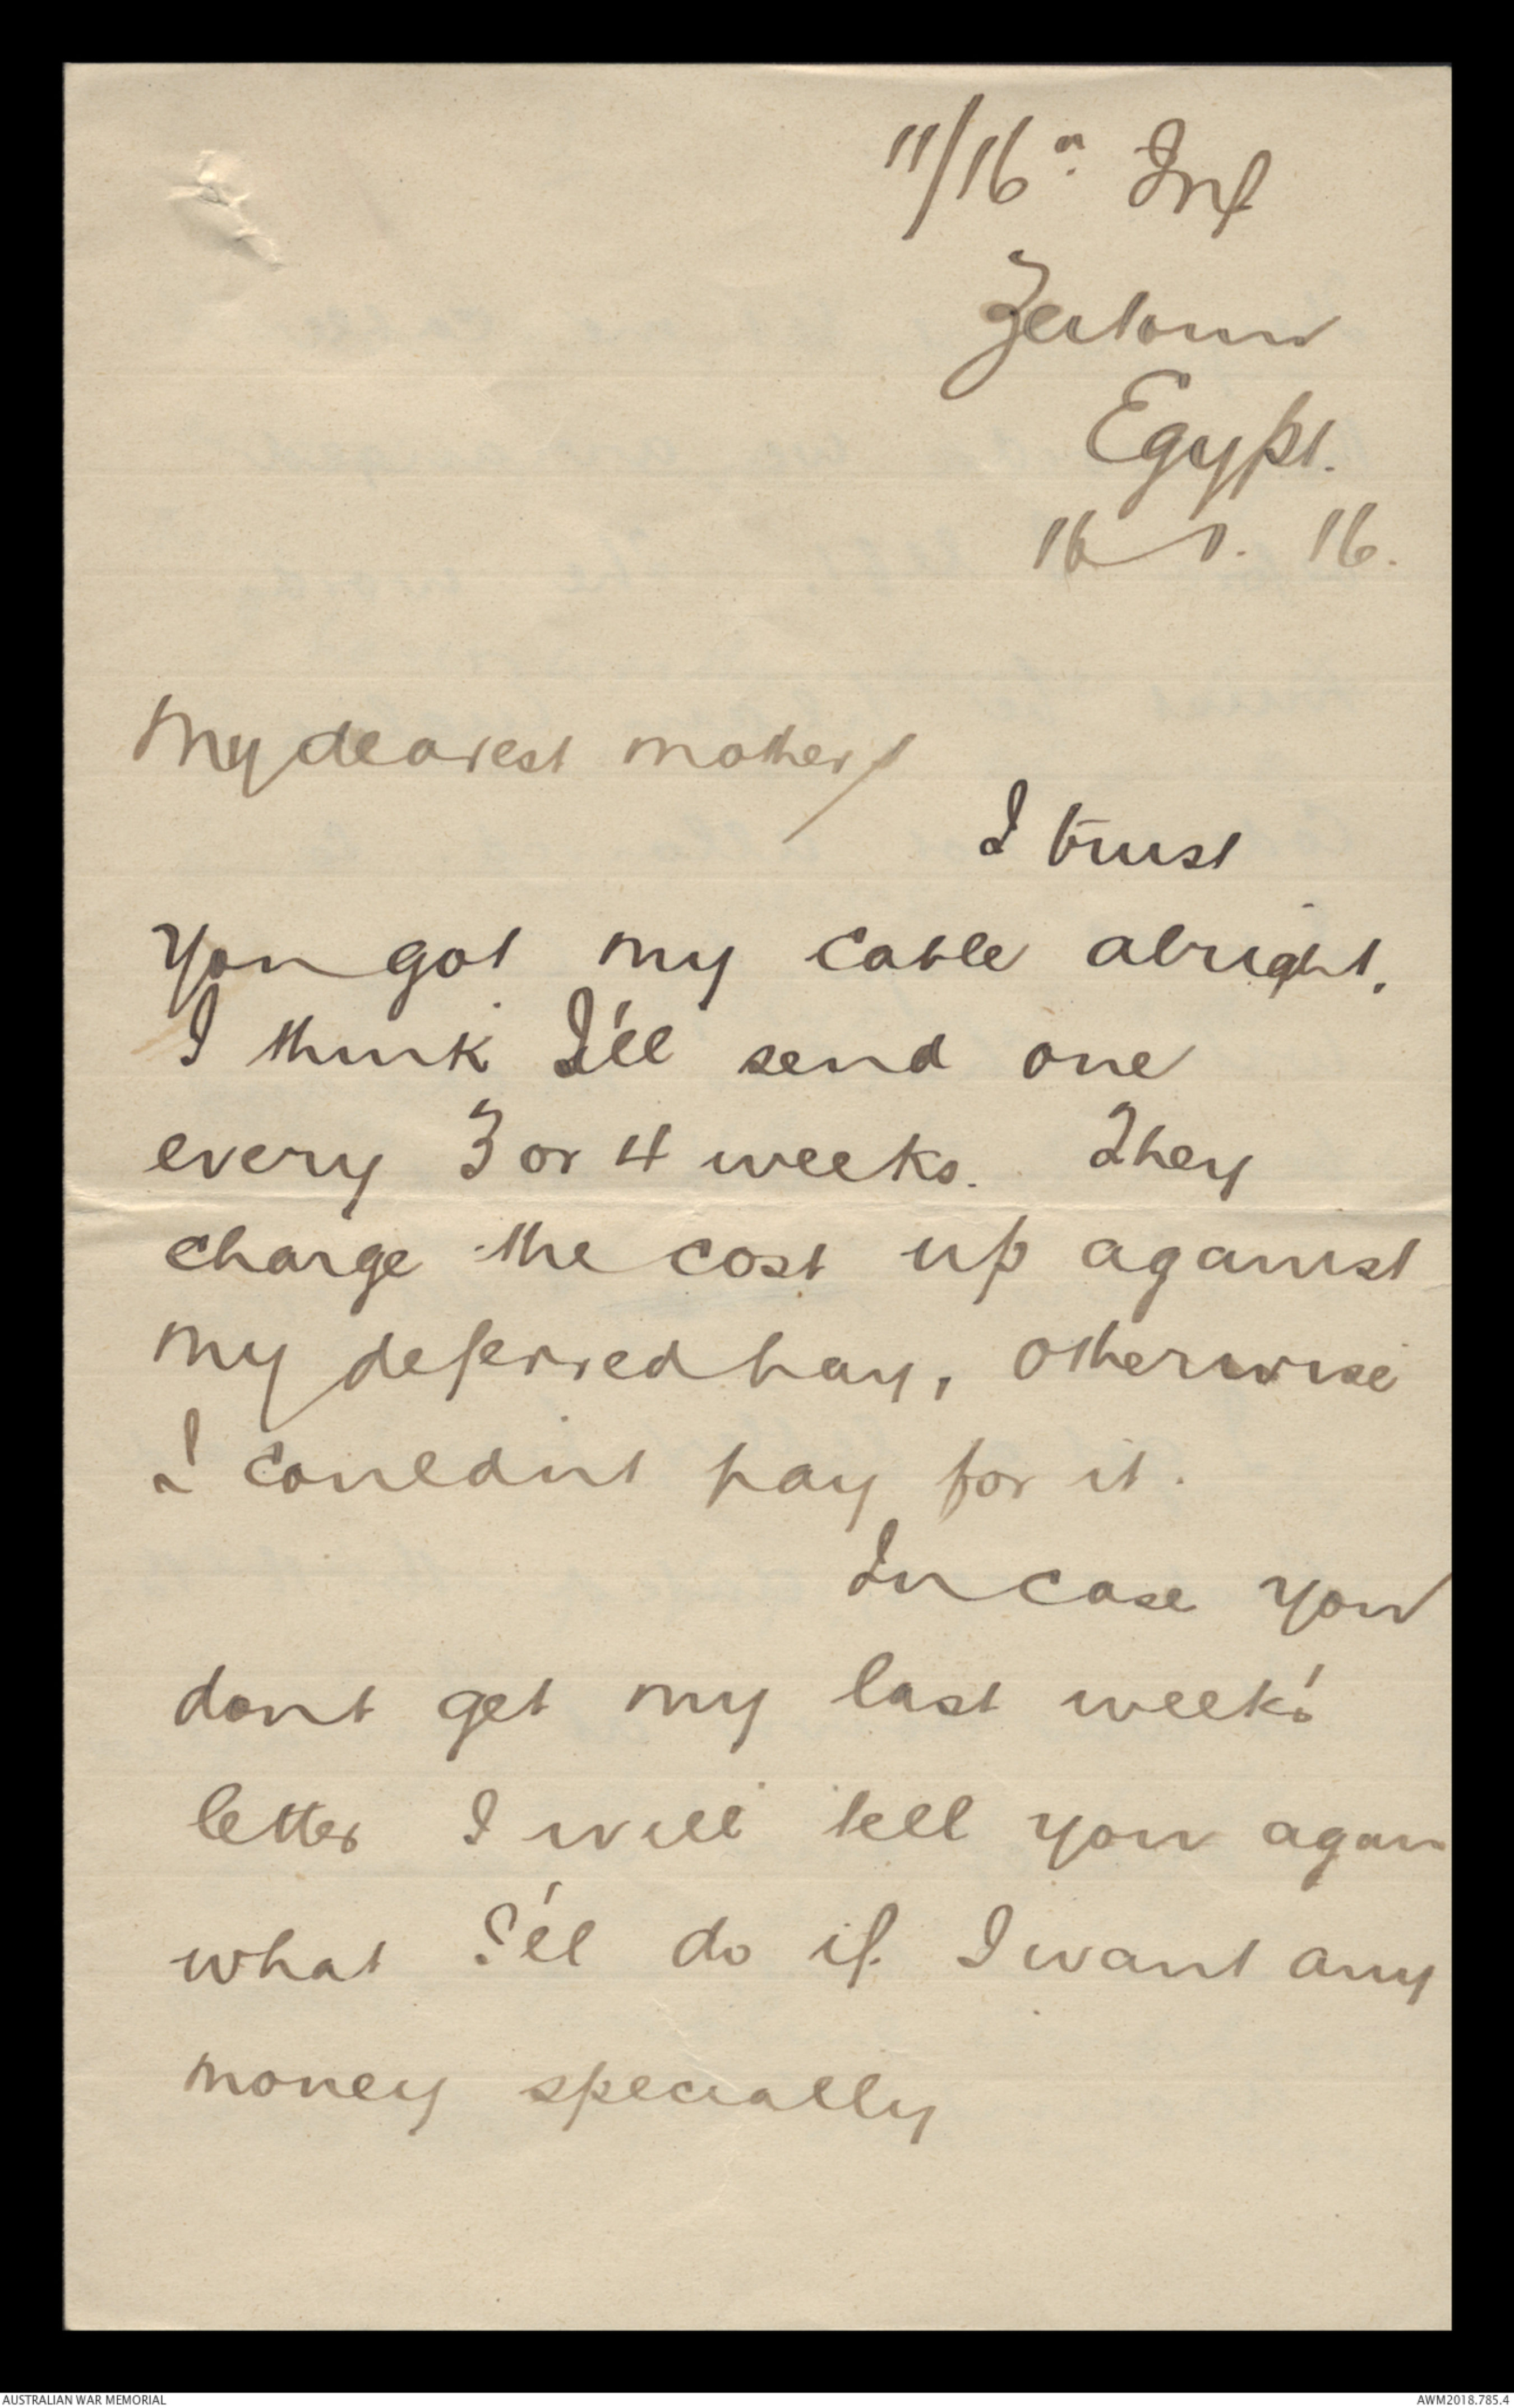 11/16th Inf
Zeitoun
Egypt.
16 1. 16.
My dearest mother,
I trust
you got my cable alright.
I think I'll send one
every 3 or 4 weeks. They
charge the cost up against
my deferred pay, otherwise
I couldn't pay for it.
In case you
dont get my last week's
letter I will tell you again
what I'll do if I want any
money specially
AUSTRALIAN WAR MEMORIAL
AWM2018.785.4